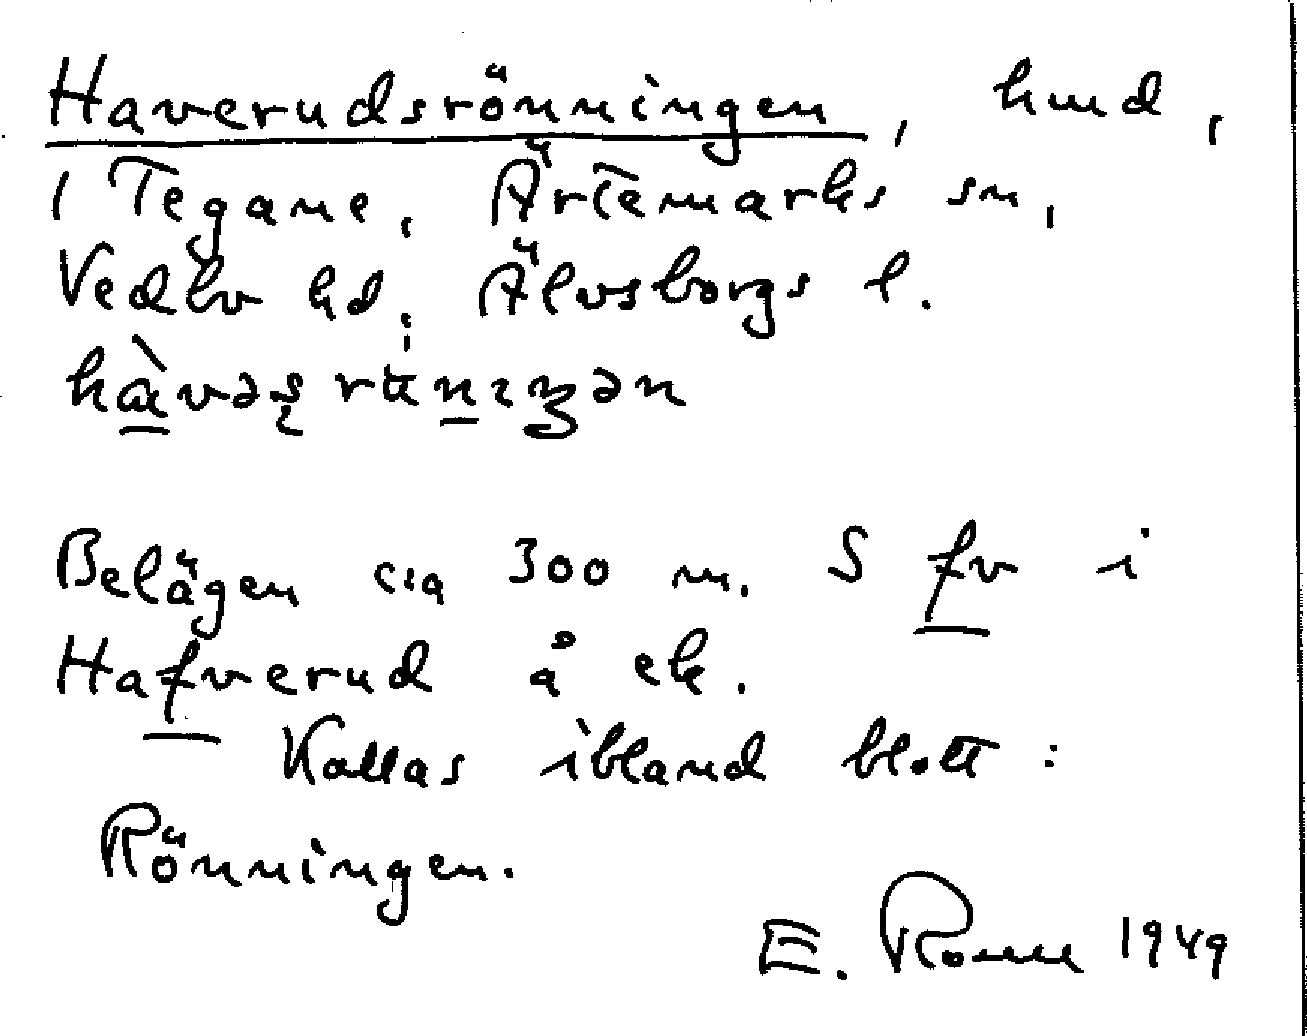 Haverudsrönningen, hmd,
i Tegane, Ärtemarks sn,
Vedbo hd, Älvsborgs l.
Belägen c:a 300 m. S fv i
Hafverud å ek.
Kallas ibland blott:
Rönningen.
E. 1949